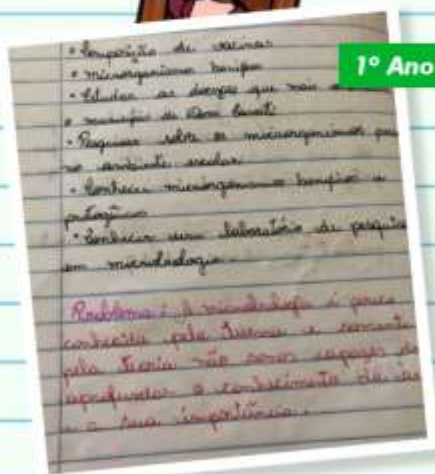 1º Ano
• Composição de vacinas
• microorganismos
• Estudar as doenças que mais
o município de Dom
• Pesquisar sobre os microorganismos
no ambiente escolar
• Conhecer microorganismos e
• Conhecer um laboratório de pesquisa
em microbiologia.
Problema: A microbiologia é pouco
conhecida pela turma e somente
pela teoria não somos capazes de
aprofundar o conhecimento da
e a sua importância.